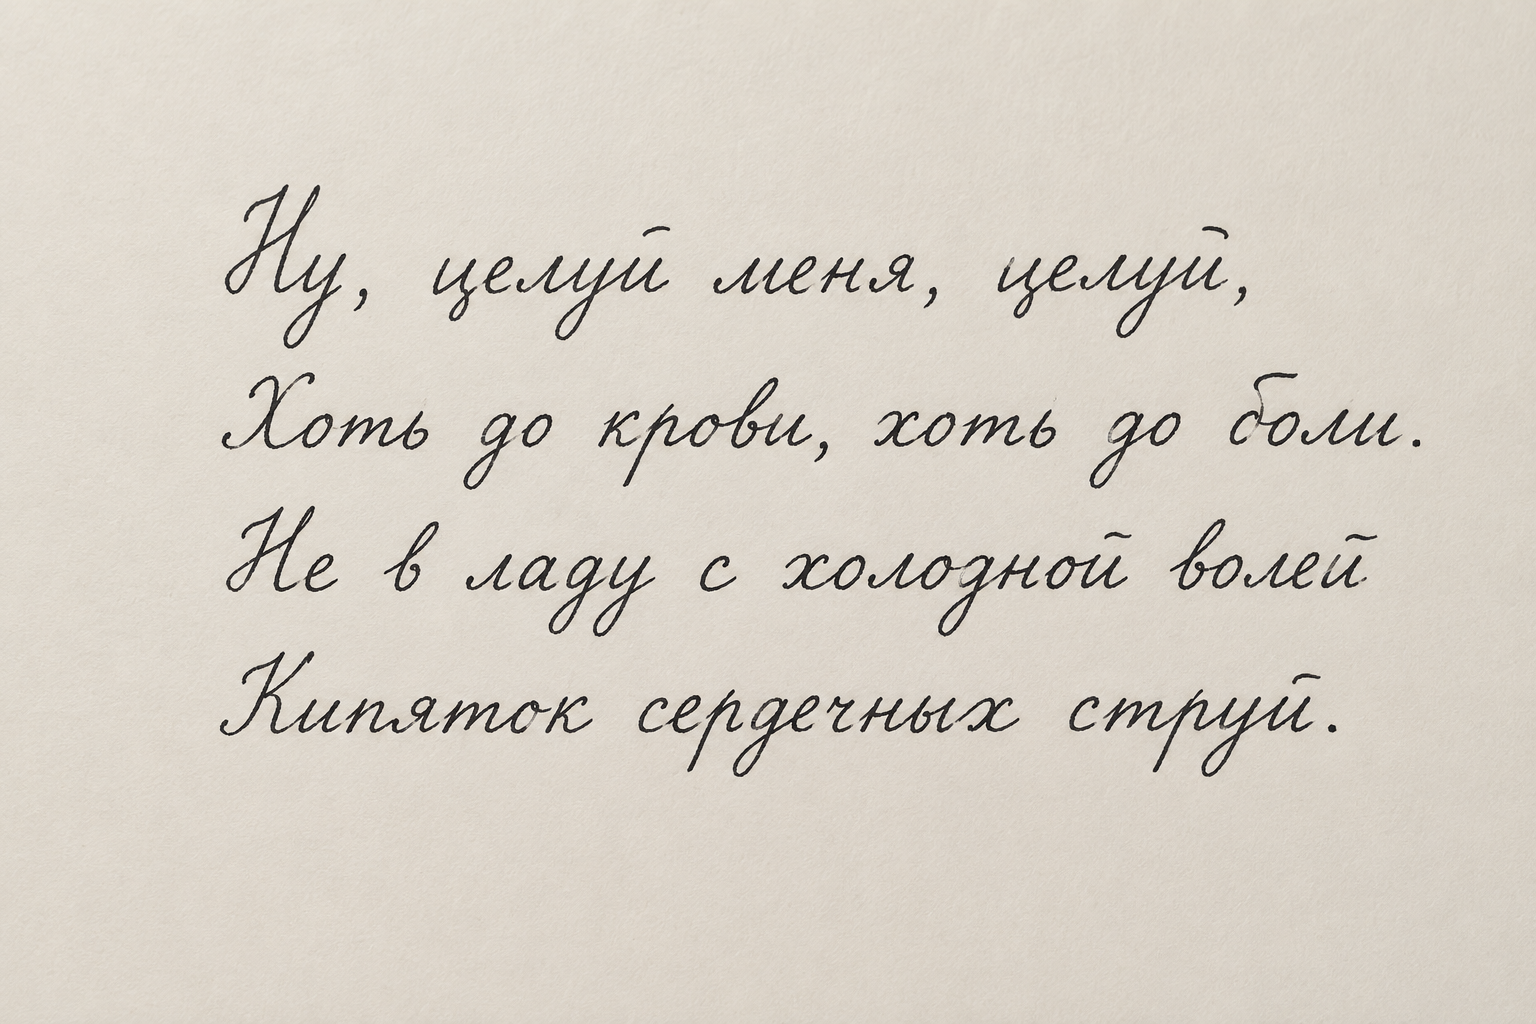 Ну, целуй меня, целуй,
Хоть до крови, хоть до боли.
Не в ладу с холодной волей
Кипяток сердечных струй.